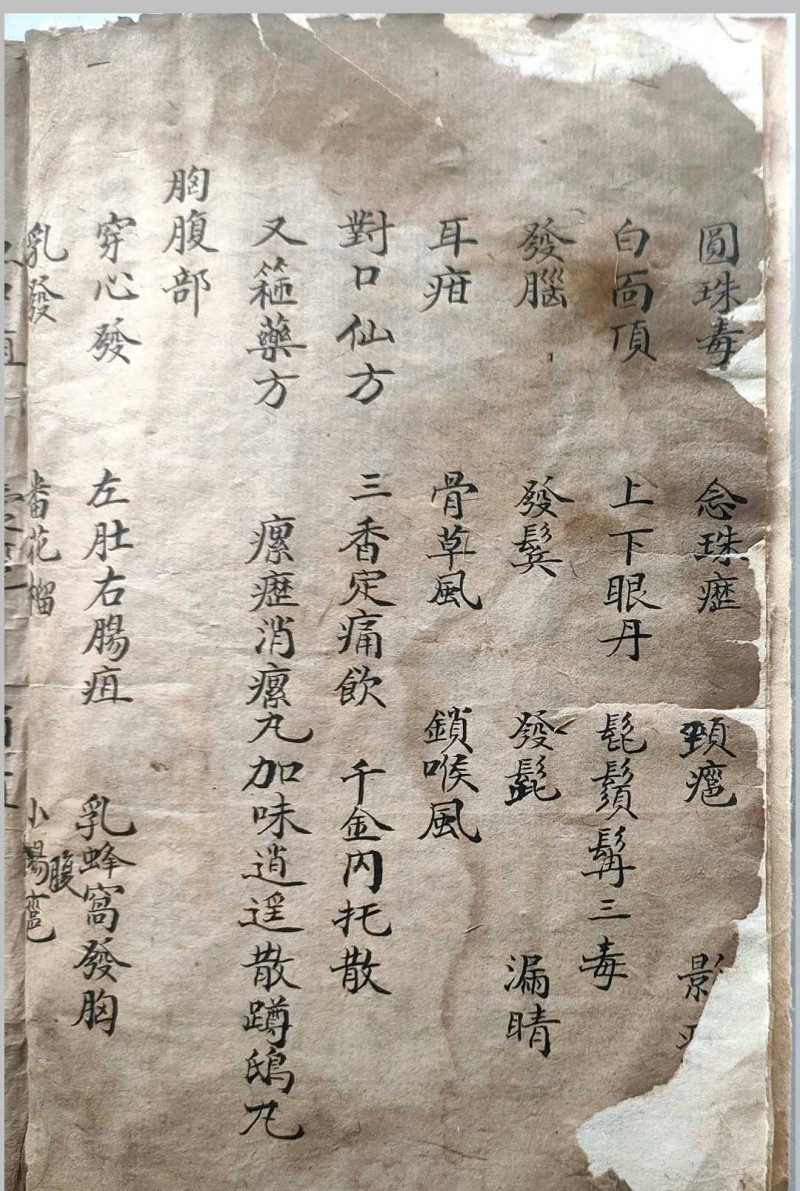 圓珠毒 念珠癧 頸癧 影
白面頂 上下眼丹 髦鬚髯三毒
發腦 發鬓 發髭 漏睛
耳疳 骨草風 鎖喉風
對口仙方 三香定痛飲 千金內托散
又箍藥方 瘰癧消瘰丸加味逍遥散蹲鴟丸
胸腹部
穿心發 左肚右腸疽 乳蜂窩發胸
乳發 番花榴 小腸
腹